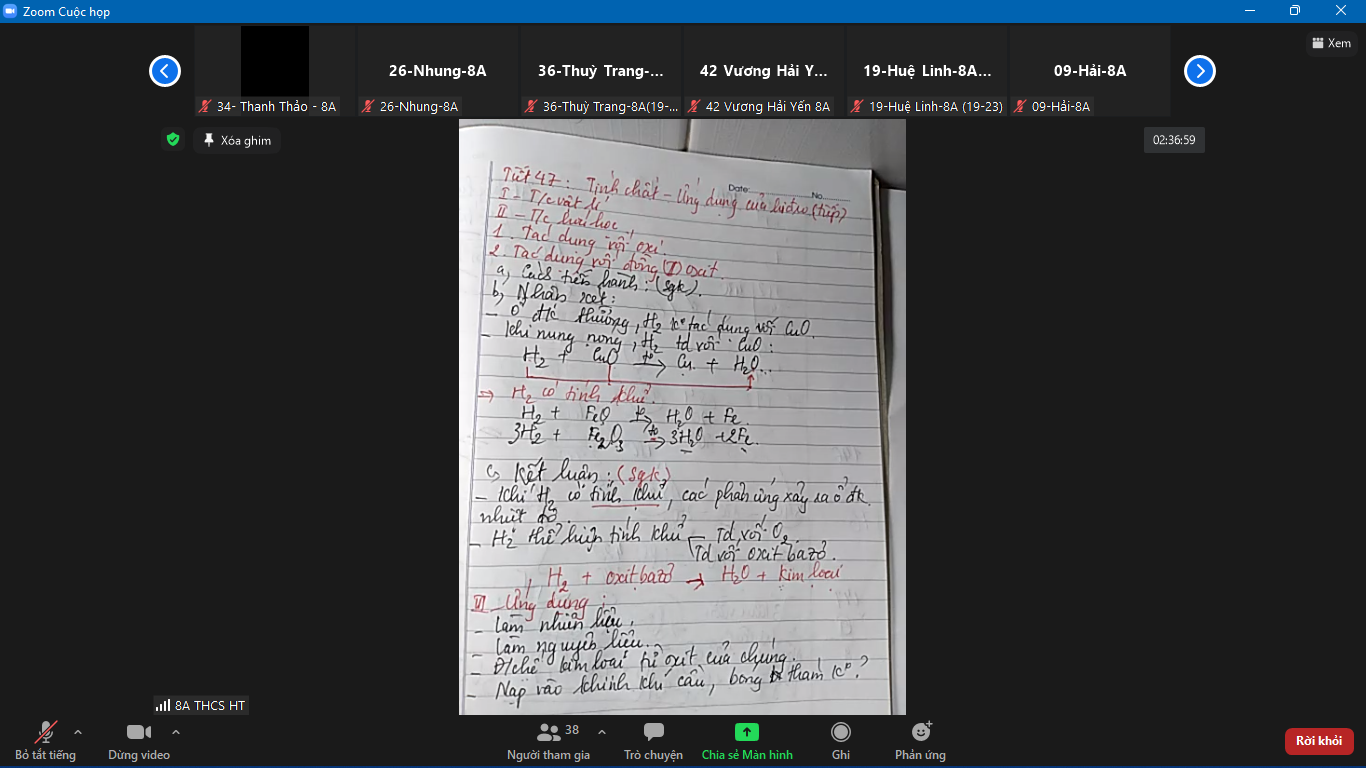 Zoom Cuộc họp
Xem
26-Nhung-8A
36-Thuỳ Trang-...
42 Vương Hải Y...
19-Huệ Linh-8A...
09-Hải-8A
34- Thanh Thảo - 8A
26-Nhung-8A
36-Thuỳ Trang-8A(19-...
42 Vương Hải Yến 8A
19-Huệ Linh-8A (19-23)
09-Hải-8A
Xóa ghim
02:36:59
Date: No.
Tiết 47: Tính chất - Ứng dụng của hiđro (tiếp)
I - T/c vật lí
II - T/c hoá học
1. Tác dụng với oxi.
2. Tác dụng với đồng (II) oxit.
a, Cách tiến hành: (sgk).
b, Nhận xét:
- Ở đk thường, H₂ k° tác dụng với CuO.
- Khi nung nóng, H₂ td với CuO:
H₂ + CuO t° → Cu + H₂O
⇒ H₂ có tính khử.
H₂ + FeO t° → H₂O + Fe.
3H₂ + Fe₂O₃ t° → 3H₂O + 2Fe.
c, Kết luận: (sgk)
- Khí H₂ có tính khử, các phản ứng xảy ra ở đk
nhiệt độ.
- H₂ thể hiện tính khử Td với O₂.
Td với oxit bazơ.
H₂ + oxit bazơ → H₂O + kim loại
III - Ứng dụng:
- Làm nhiên liệu.
- Làm nguyên liệu.
- Đ/chế kim loại từ oxit của chúng.
- Nạp vào khinh khí cầu, bóng thám k°?
8A THCS HT
Bỏ tắt tiếng
Dừng video
38
Người tham gia
Trò chuyện
Chia sẻ Màn hình
Ghi
Phản ứng
Rời khỏi